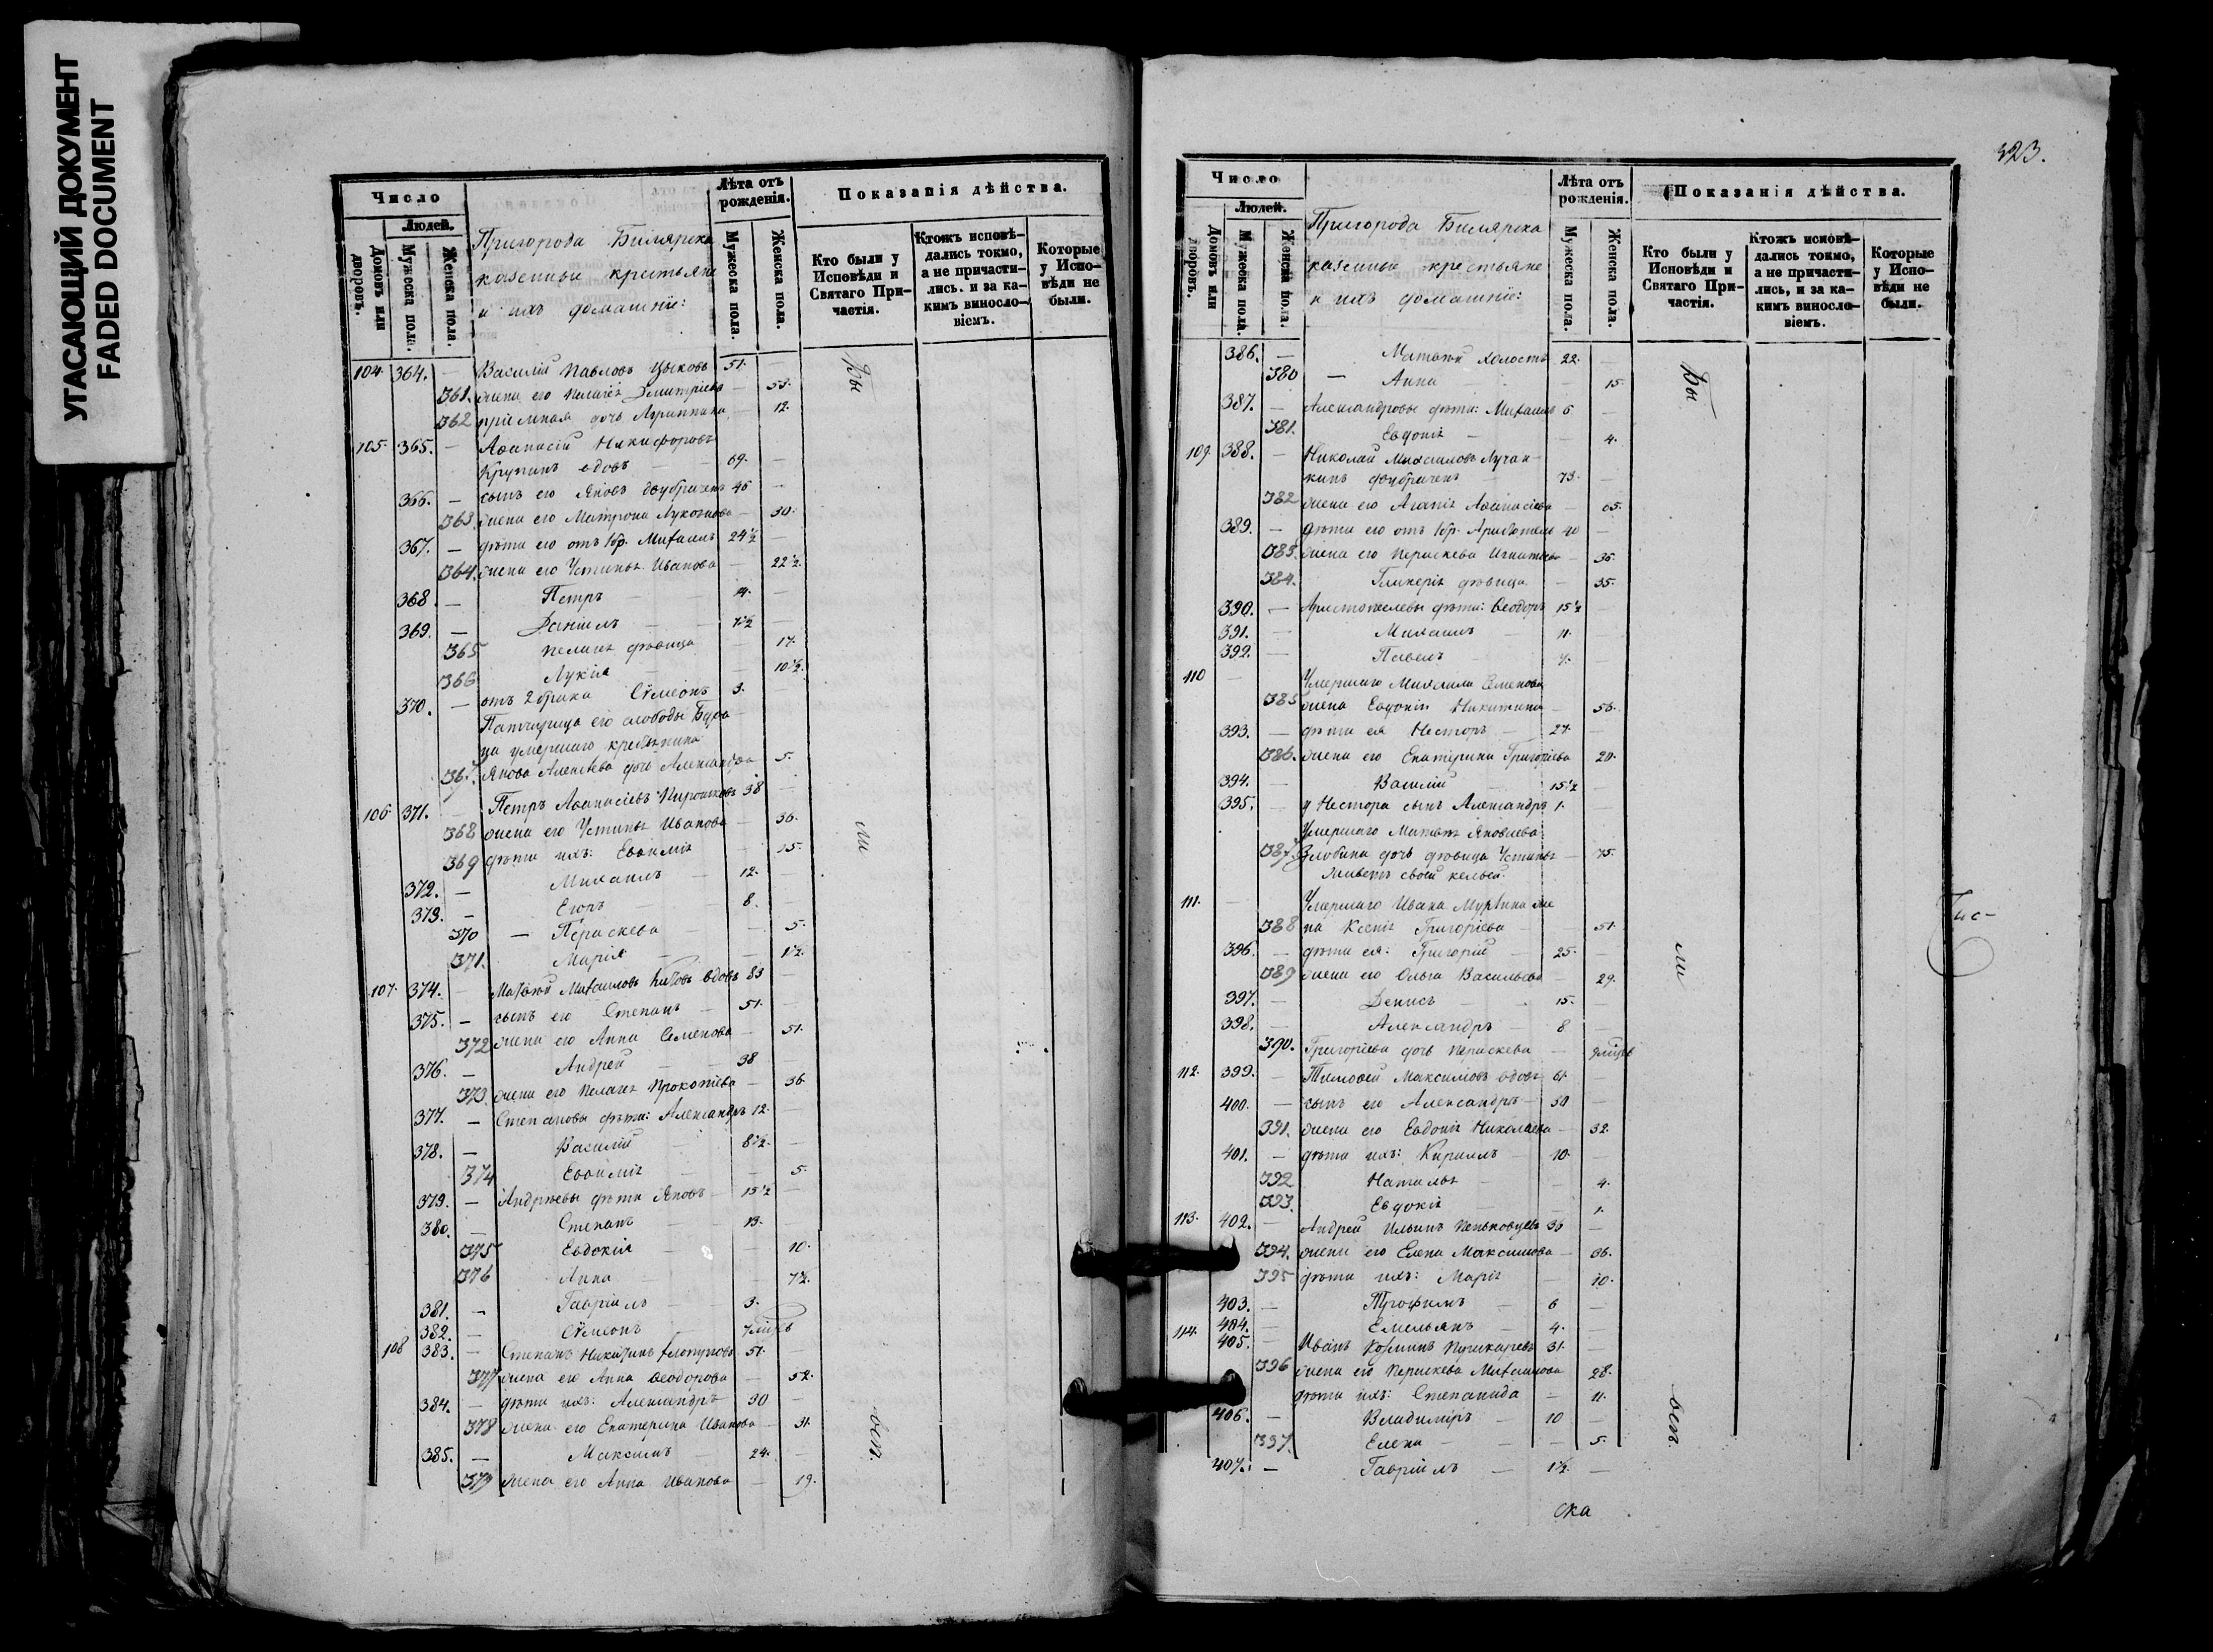 УГАСАЮЩИЙ ДОКУМЕНТ
FADED DOCUMENT
Число
Людей.
Домовъ или дворовъ.
Мужеска пола.
Женска пола.
Пригорода Билярска
казенные крестьяне
и ихъ домашніе:
Лѣта отъ рожденія.
Мужеска пола.
Женска пола.
Показанія дѣйства.
Кто были у Исповѣди и Святаго Причастія.
Ктожъ исповѣдались токмо, а не причастились, и за какимъ винословіемъ.
Которые у Исповѣди не были.
104. 364. — Василій Павловъ 51. —
361. жена его Пелагія Димитріева — 53.
362 пріемная дочь Агриппина — 12.
105. 365. — Аѳанасій Никифоровъ
вдовъ — 69. —
366. — сынъ его Яковъ двубраченъ 46 —
363. жена его Матрона — 30.
367. — дѣти его отъ 1 бр. Михаилъ 24½ —
364. жена его Устинья Иванова — 22½.
368. — Петръ —
369. — Даніилъ —
365 Пелагія дѣвица — 17.
366 Лукія — 10½.
370. — отъ 2 брака Сѵмеонъ 3. —
Патчерица его слободы
умершаго крестьянина
367. Якова Алексѣева дочь Александра 5.
106 371. Петръ Аѳанасіевъ 38 —
368 жена его Устинья Иванова — 36.
369 дѣти ихъ: Евѳимія — 15.
372. — Михаилъ — 12. —
373. — Егоръ — 8. —
370 — Параскева — 5.
371. Марія — 1½.
107. 374. — Матѳей Михаиловъ вдовъ 83 —
375. — сынъ его Степанъ — 51. —
372 жена его Анна Семенова — 51.
376. — Андрей — 38 —
373. жена его Пелагія Прокопіева — 36.
377. — Степановы дѣти: Александръ 12. —
378. — Василій 8½. —
374 Евѳимія — 5.
379. — Андреевы дѣти Яковъ — 15½ —
380. — Степанъ — 13. —
375 Евдокія — 10.
376 Анна — 7½.
381. — Гавріилъ — 3.
382. — Сѵмеонъ
108 383. — Степанъ Никитинъ 51. —
377 жена его Анна Ѳеодорова — 52.
384. — дѣти ихъ: Александръ 30 —
378 жена его Екатерина Иванова — 31.
385. — Максимъ — 24. —
379 жена его Анна Иванова — 19.
Бы
ли
всѣ.
323.
Число
Людей.
Домовъ или дворовъ.
Мужеска пола.
Женска пола.
Пригорода Билярска
казенные крестьяне
и ихъ домашніе:
Лѣта отъ рожденія.
Мужеска пола.
Женска пола.
Показанія дѣйства.
Кто были у Исповѣди и Святаго Причастія.
Ктожъ исповѣдались токмо, а не причастились, и за какимъ винословіемъ.
Которые у Исповѣди не были.
386. — Матѳей холостъ 22. —
380 — Анна — 15.
387. — Александровы дѣти: Михаилъ 6 —
381. Евдокія — 4.
109. 388. — Николай Михаиловъ
двубраченъ 73. —
382 жена его Агапія Аѳанасіева — 65.
389. — дѣти его отъ 1 бр. 40 —
383. жена его Параскева Игнатіева — 36.
384. Гликерія дѣвица — 35.
390. — дѣти: Ѳеодоръ 15½ —
391. — Михаилъ — 11. —
392. — Павелъ —
110 — Умершаго Михаила Семенова
385 жена Евдокія Никитина — 56.
393. — дѣти ея Несторъ — 27. —
386. жена его Екатерина Григоріева 20.
394. — Василій — 15½ —
395. — у Нестора сынъ Александръ 1. —
Умершаго Матвѣя Яковлева
387. дочь дѣвица Устинья — 75.
живетъ своей кельей.
111. — Умершаго Ивана же
388 на Ксенія Григоріева — 51.
396. — дѣти ея: Григорій — 25. —
389 жена его Ольга Васильева — 29.
397. — Денисъ — 15. —
398. — Александръ — 8 —
390. Григоріева дочь Параскева —
112. 399. — Тимоѳей Максимовъ вдовъ 61. —
400. — сынъ его Александръ — 30 —
391. жена его Евдокія Николаева — 32.
401. — дѣти ихъ: Кириллъ — 10. —
392 Наталья — 4.
393. Евдокія — 1.
113. 402. — Андрей Ильинъ 36 —
394. жена его Елена Максимова — 36.
395 дѣти ихъ: Марія — 10.
403. — Трофимъ — 6 —
404. — Емельянъ — 4. —
114. 405. — Иванъ Козминъ Пушкаревъ 31. —
396 жена его Параскева Михаилова 28.
дѣти ихъ: Степанида — 11.
406. — Владиміръ — 10 —
397. Елена — 5.
407. — Гавріилъ — 1½. —
Бы
ли
всѣ.
ска